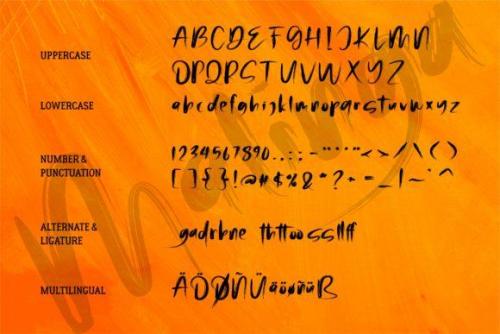 UPPERCASE
ABCDEFGHIJKLMN
OPQRSTUVWXYZ
LOWERCASE
abcdefghijklmnopqrstuvwxyz
NUMBER &
PUNCTUATION
1234567890.,:;-"'"'<>/\()
[]{}!@#$%&*?+=_|~`^
ALTERNATE &
LIGATURE
gadrbne thttoossllff
MULTILINGUAL
ÄÖØÑÜäöøñüß